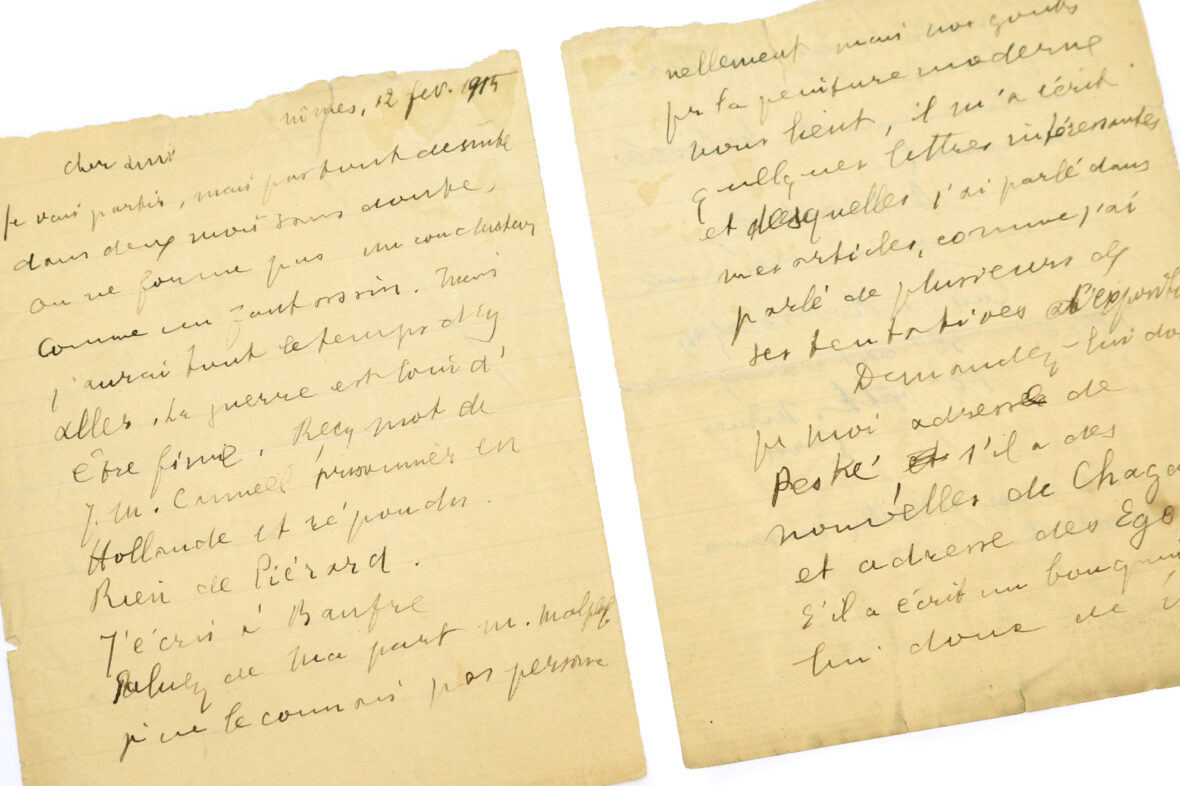 nimes, 12 fev. 1915
cher ami
Je vais partir, mais pas tout de suite
dans deux mois sans doute,
on ne forme pas un conducteur
comme un fantassin. Mais
j'aurai tout le temps d'y
aller, la guerre est loin d'
être finie. Reçu mot de
J. M. prisonnier en
Hollande et répondu.
Rien de Piérard.
J'écris à
Saluez de ma part M.
je ne le connais pas person
nellement mais nos goûts
pr la peinture moderne
nous lient, il m'a écrit
quelques lettres intéressantes
et desquelles j'ai parlé dans
mes articles, comme j'ai
parlé de plusieurs de
ses tentatives d'expositi
Demandez-lui do
pr moi adresse de
Peské et s'il a des
nouvelles de Chaga
et adresse des Ego
S'il a écrit un bouqui
lui donc de